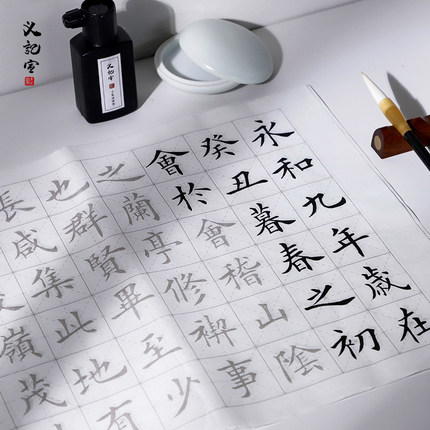 义記宣
义記宣
永和九年歲在
癸丑暮春之初
會於會稽山陰
之蘭亭修禊事
也群賢畢至少
長咸集此地有
嶺茂